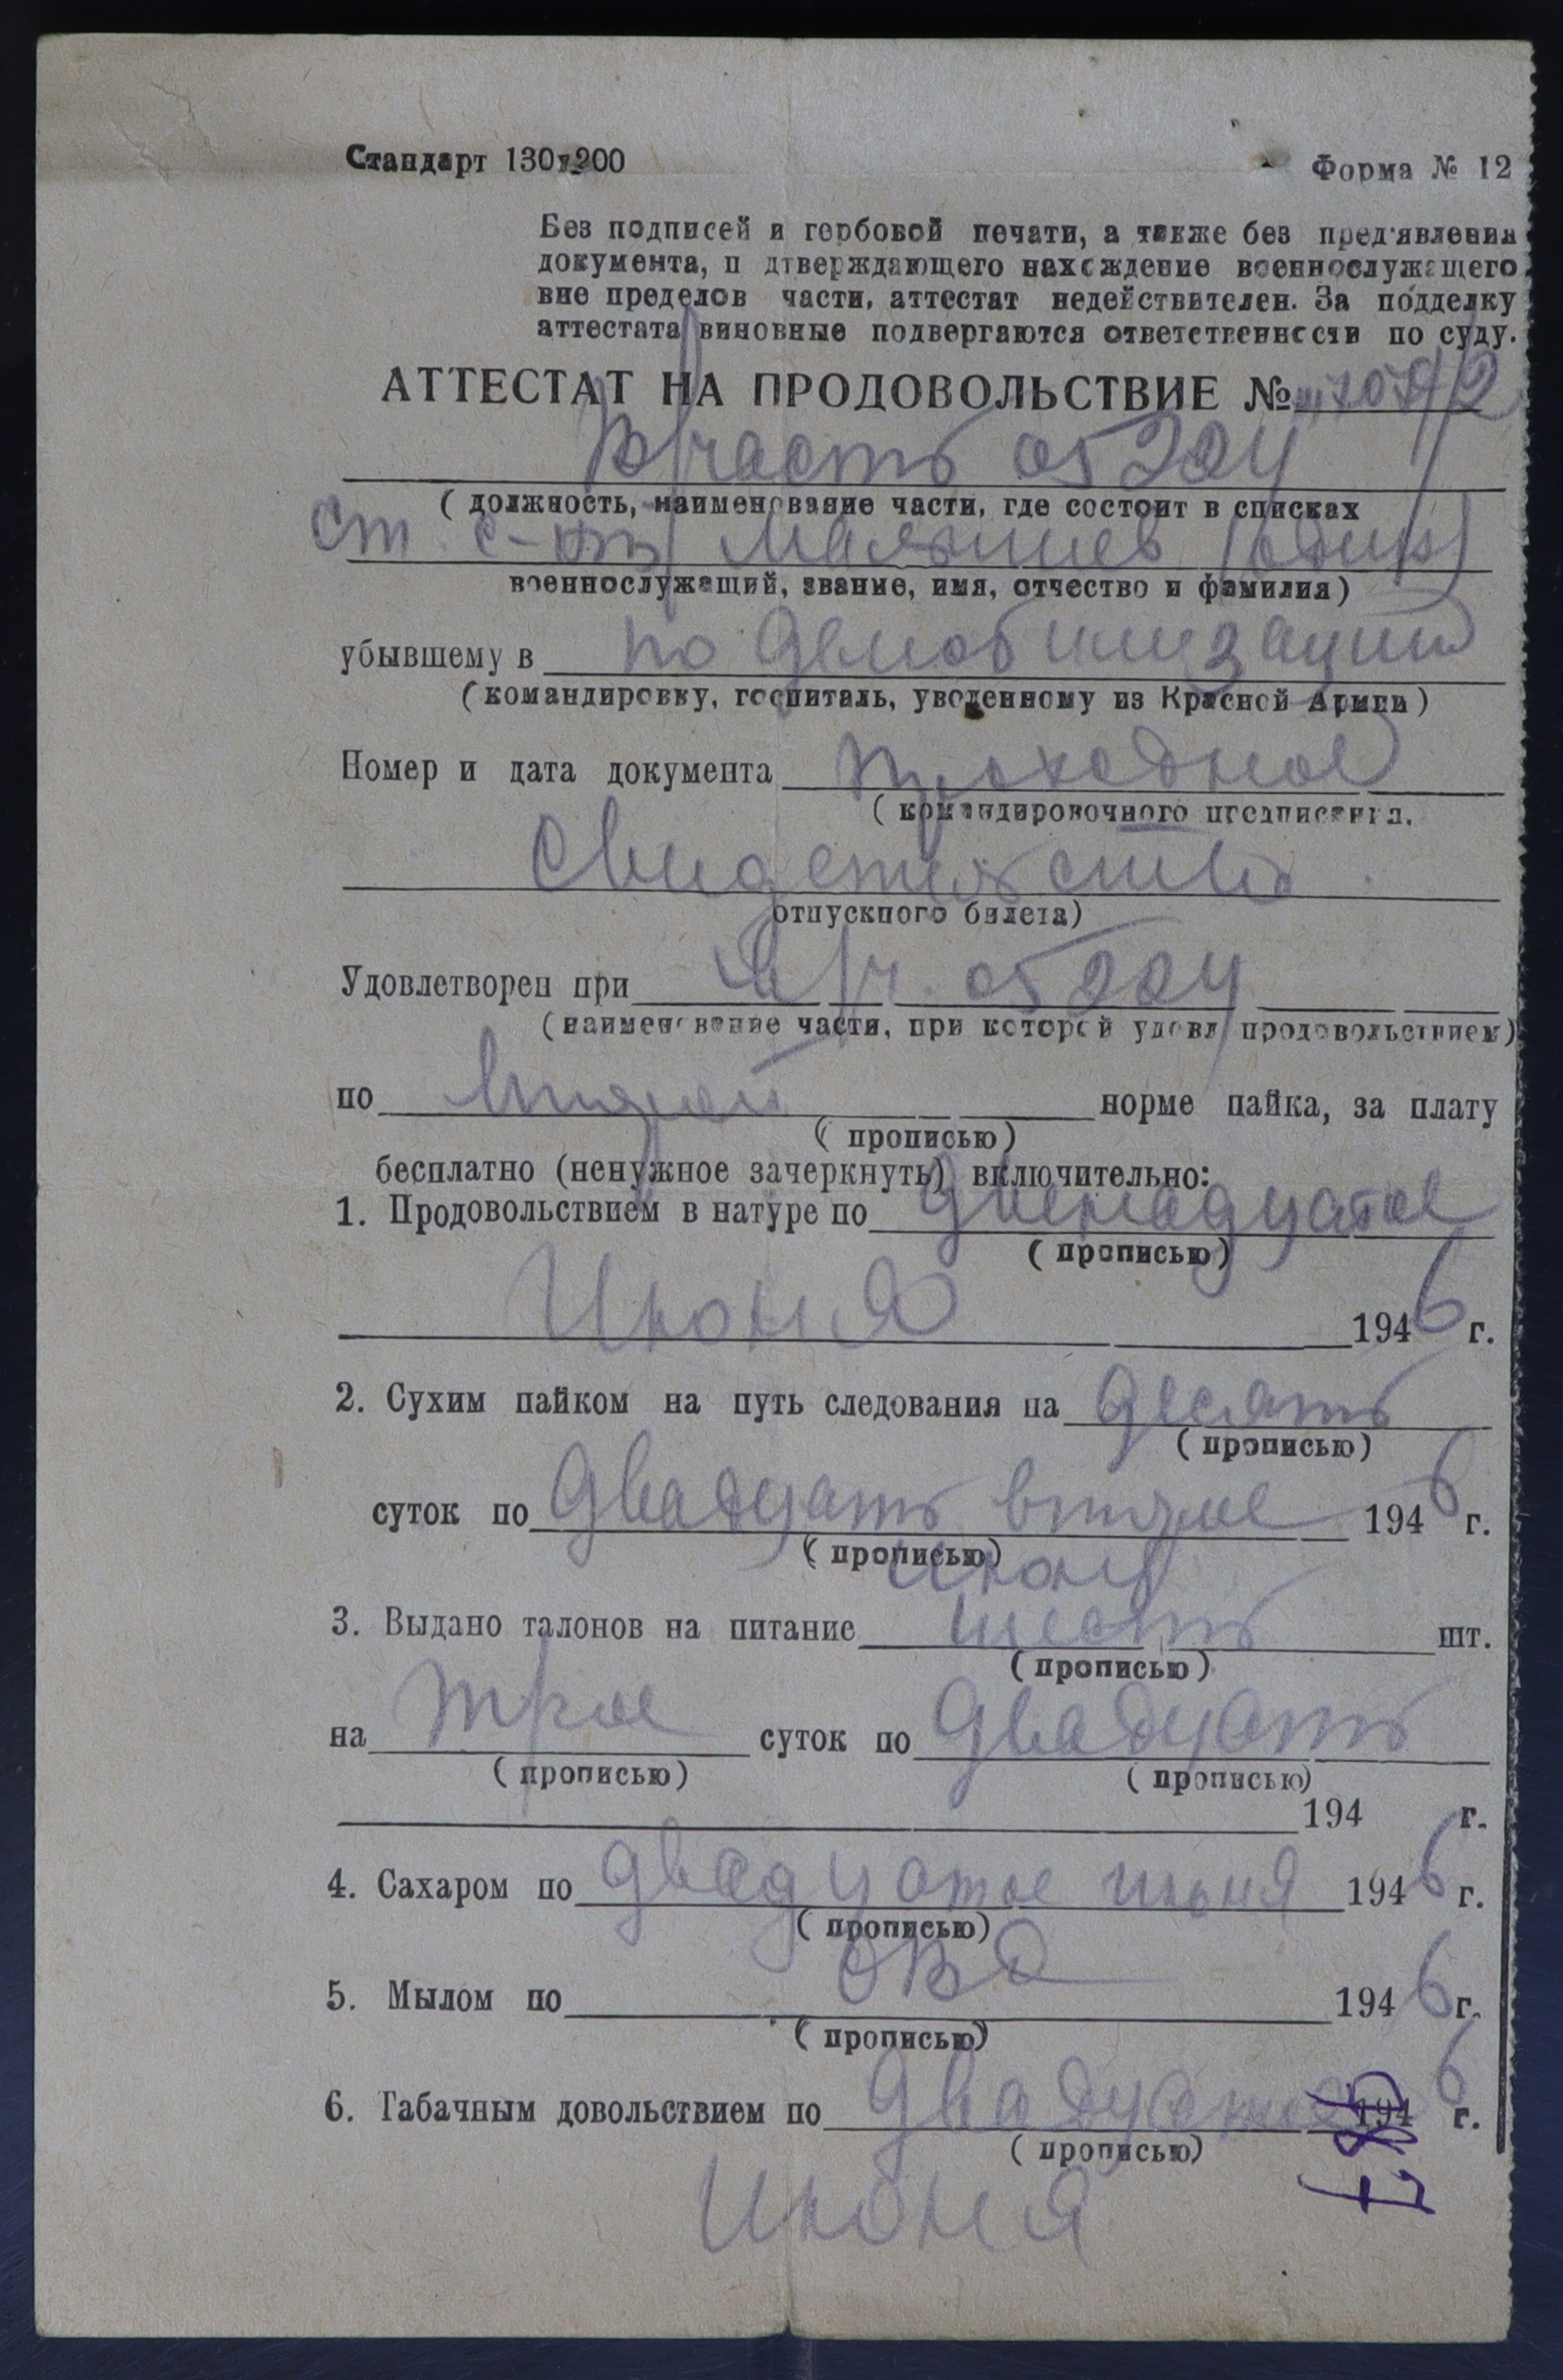 Стандарт 130х200
Форма № 12
Без подписей и гербовой печати, а также без пред'явления
документа, п дтверждающего нахождение военнослужащего
вне пределов части, аттестат недействителен. За подделку
аттестата виновные подвергаются ответственности по суду.
АТТЕСТАТ НА ПРОДОВОЛЬСТВИЕ №
В/часть 05224
(должность, наименование части, где состоит в списках
ст. с-нт Малышев (один)
военнослужащий, звание, имя, отчество и фамилия)
убывшему в по демобилизации
(командировку, госпиталь, уволенному из Красной Армии)
Номер и дата документа проходное
(командировочного предписания,
свидетельство
отпускного билета)
Удовлетворен при в/ч. 05224
(наименование части, при которой удовл продовольствием)
по второй норме пайка, за плату
(прописью)
бесплатно (ненужное зачеркнуть) включительно:
1. Продовольствием в натуре по двенадцатое
(прописью)
Июня 1946 г.
2. Сухим пайком на путь следования на десять
(прописью)
суток по двадцать второе 1946 г.
(прописью)
июня
3. Выдано талонов на питание шесть шт.
(прописью)
на трое суток по двадцать
(прописью) (прописью)
194 г.
4. Сахаром по двадцатое июня 1946 г.
(прописью)
5. Мылом по 1946 г.
(прописью)
6. Табачным довольствием по двадцатое 1946 г.
(прописью)
Июня